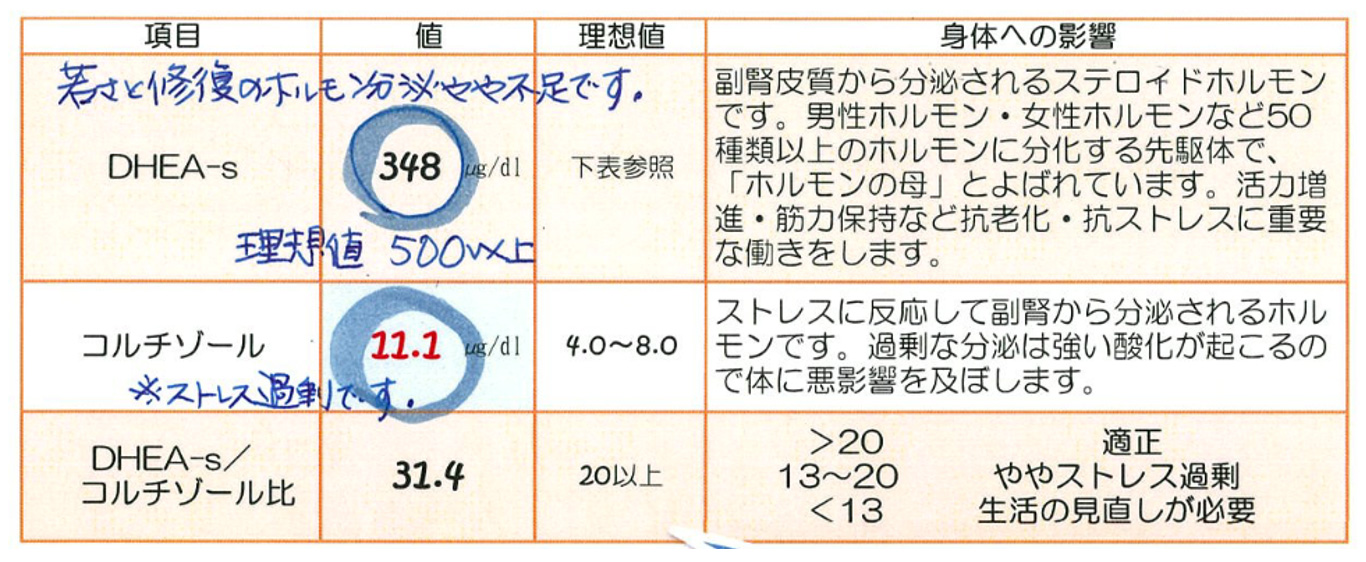 項目 値 理想値 身体への影響
若さと修復のホルモン分泌やや不足です。
DHEA-s 348 μg/dl 下表参照
理想値 500以上
副腎皮質から分泌されるステロイドホルモン
です。男性ホルモン・女性ホルモンなど50
種類以上のホルモンに分化する先駆体で、
「ホルモンの母」とよばれています。活力増
進・筋力保持など抗老化・抗ストレスに重要
な働きをします。
コルチゾール 11.1 μg/dl 4.0〜8.0
※ストレス過剰です。
ストレスに反応して副腎から分泌されるホル
モンです。過剰な分泌は強い酸化が起こるの
で体に悪影響を及ぼします。
DHEA-s/
コルチゾール比 31.4 20以上
>20 適正
13〜20 ややストレス過剰
<13 生活の見直しが必要